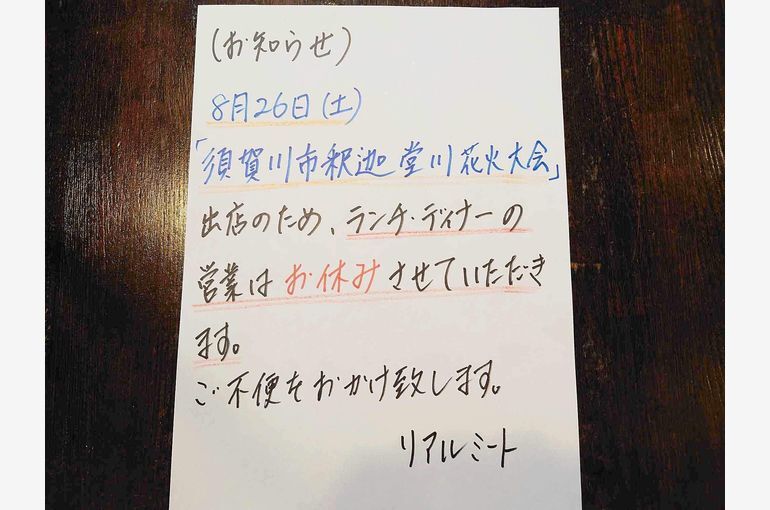 (お知らせ)
8月26日(土)
「須賀川市釈迦堂川花火大会」
出店のため、ランチ・ディナーの
営業はお休みさせていただき
ます。
ご不便をおかけ致します。
リアルミート